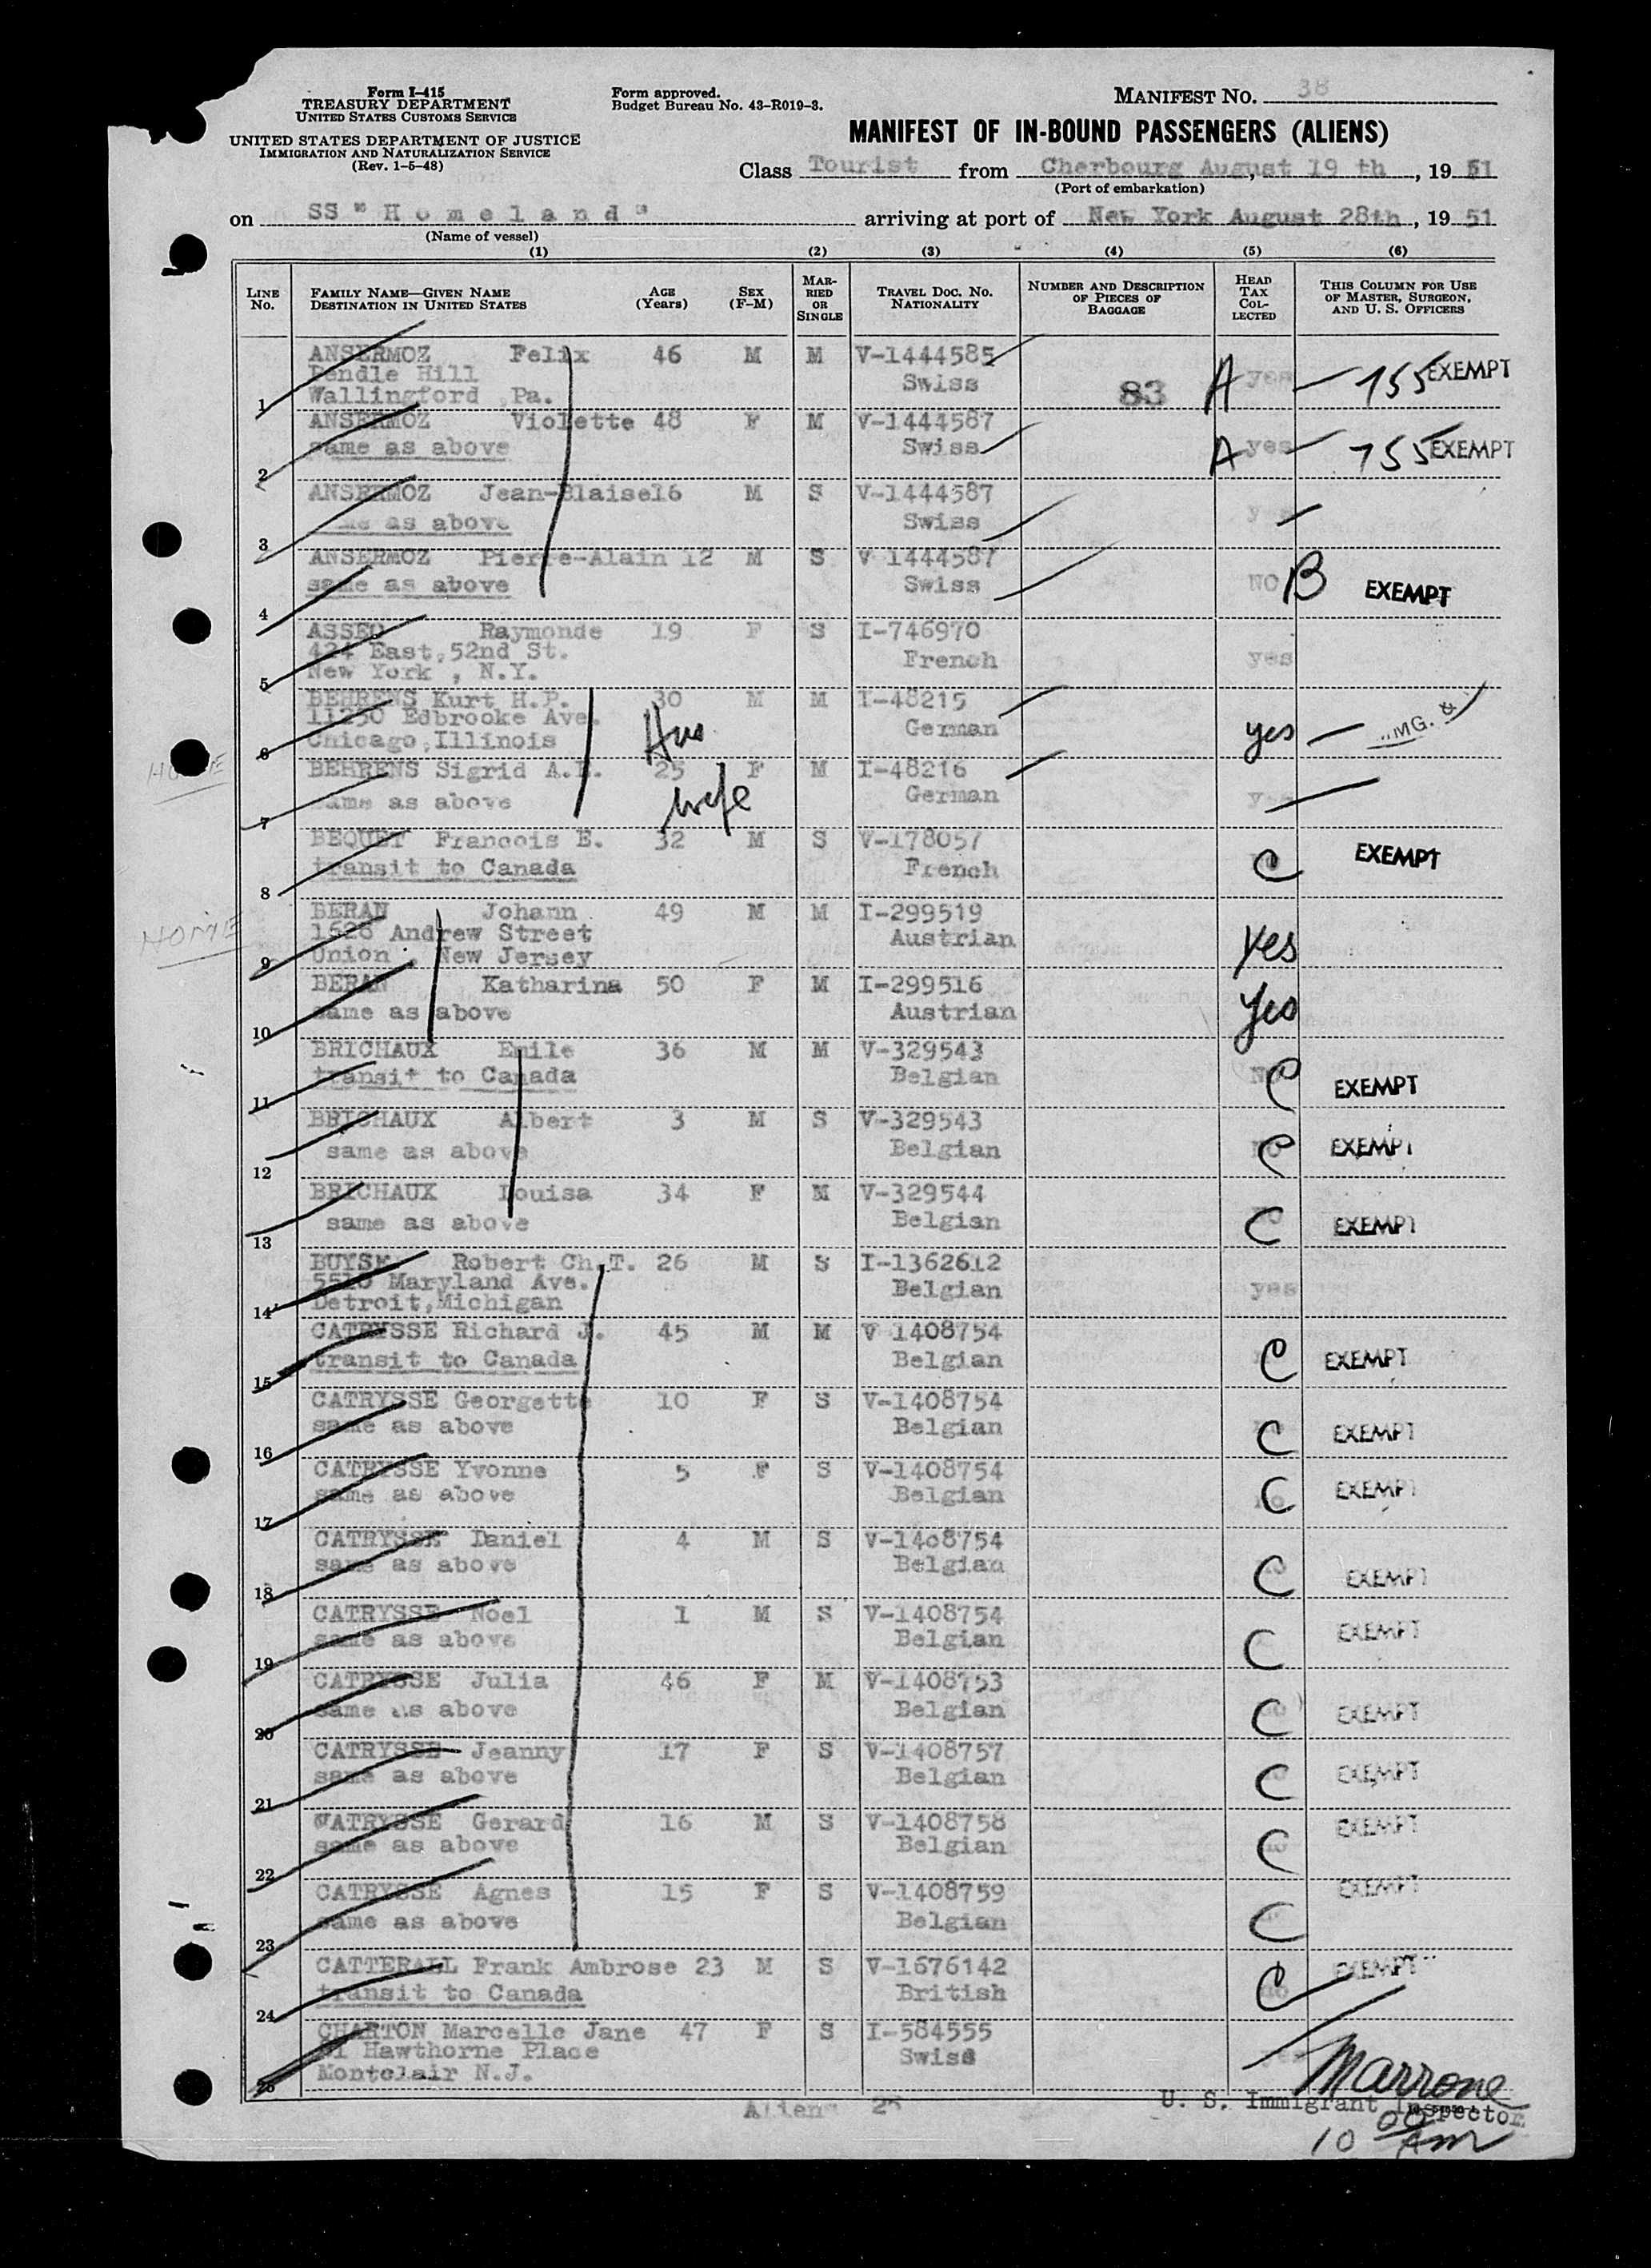 Form I-415
TREASURY DEPARTMENT
UNITED STATES CUSTOMS SERVICE
UNITED STATES DEPARTMENT OF JUSTICE
IMMIGRATION AND NATURALIZATION SERVICE
(Rev. 1-5-48)
Form approved.
Budget Bureau No. 43-R019-3.
MANIFEST NO. 38
MANIFEST OF IN-BOUND PASSENGERS (ALIENS)
Class Tourist from Cherbourg August 19 th, 19 51
(Port of embarkation)
on SS "Homeland" arriving at port of New York August 28th, 19 51
(Name of vessel)
(1) (2) (3) (4) (5) (6)
LINE No. FAMILY NAME—GIVEN NAME DESTINATION IN UNITED STATES AGE (Years) SEX (F-M) MARRIED OR SINGLE TRAVEL DOC. NO. NATIONALITY NUMBER AND DESCRIPTION OF PIECES OF BAGGAGE HEAD TAX COLLECTED THIS COLUMN FOR USE OF MASTER, SURGEON, AND U. S. OFFICERS
ANSERMOZ Felix 46 M M V-1444585
Pendle Hill Swiss 83 A yes 155 EXEMPT
1 Wallingford, Pa.
ANSERMOZ Violette 48 F M V-1444587
same as above Swiss A yes 155 EXEMPT
2
ANSERMOZ Jean-Blaise 16 M S V-1444587
same as above Swiss yes
3
ANSERMOZ Pierre-Alain 12 M S V 1444587
same as above Swiss NO B EXEMPT
4
ASSEO Raymonde 19 F S I-746970
424 East, 52nd St. French yes
5 New York, N.Y.
BEHRENS Kurt H.P. 30 M M I-48215
11250 Edbrooke Ave. Hus German yes
6 Chicago, Illinois
HOME
BEHRENS Sigrid 25 F M I-48216
same as above wife German yes
7
BEQUET Francois E. 32 M S V-178057
transit to Canada French C EXEMPT
8
BERAN Johann 49 M M I-299519
HOME 1626 Andrew Street Austrian yes
9 Union, New Jersey
BERAN Katharina 50 F M I-299516
same as above Austrian yes
10
BRICHAUX Emile 36 M M V-329543
transit to Canada Belgian No C EXEMPT
11
BRICHAUX Albert 3 M S V-329543
same as above Belgian C EXEMPT
12
BRICHAUX Louisa 34 F M V-329544
same as above Belgian C EXEMPT
13
BUYSE Robert Ch.T. 26 M S I-1362612
5510 Maryland Ave. Belgian yes
14 Detroit, Michigan
CATRYSSE Richard J. 45 M M V 1408754
transit to Canada Belgian C EXEMPT
15
CATRYSSE Georgette 10 F S V-1408754
same as above Belgian C EXEMPT
16
CATRYSSE Yvonne 5 F S V-1408754
same as above Belgian no C EXEMPT
17
CATRYSSE Daniel 4 M S V-1408754
same as above Belgian C EXEMPT
18
CATRYSSE Noel 1 M S V-1408754
same as above Belgian C EXEMPT
19
CATRYSSE Julia 46 F M V-1408753
same as above Belgian C EXEMPT
20
CATRYSSE Jeanny 17 F S V-1408757
same as above Belgian C EXEMPT
21
CATRYSSE Gerard 16 M S V-1408758
same as above Belgian C EXEMPT
22
CATRYSSE Agnes 15 F S V-1408759
same as above Belgian C EXEMPT
23
CATTERALL Frank Ambrose 23 M S V-1676142
transit to Canada British C EXEMPT
24
CHARTON Marcelle Jane 47 F S I-584555
Hawthorne Place Swiss
25 Montclair N.J.
Marrone
Aliens 25 U. S. Immigrant Inspector
10 00 AM